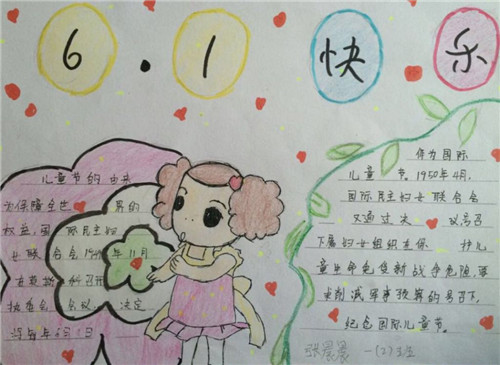 6.1快乐
儿童节的由来
为保障全世 男的
权益,国 际民主妇
女联合会1949年11月
在莫斯科召开
执委会会议,决定
每年6月1日
作为国际
儿童节。1950年4月,
国际民主妇女联合会
又通过 号召
下属妇女组织在保 护儿
童生命免受新战争危险
削减军事预算的号召下,
纪念国际儿童节。
张晨晨 一(2)